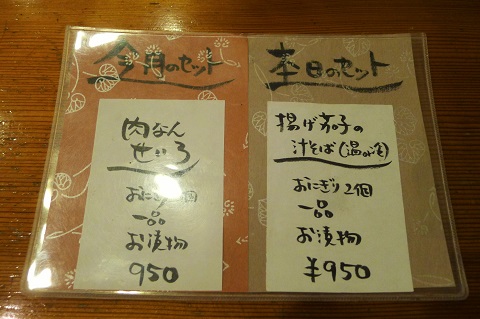 今月のセット
肉なん
せいろ
おにぎり 個
一品
お漬物
950
本日のセット
揚げ茄子の
汁そば(温かい)
おにぎり2個
一品
お漬物
¥950